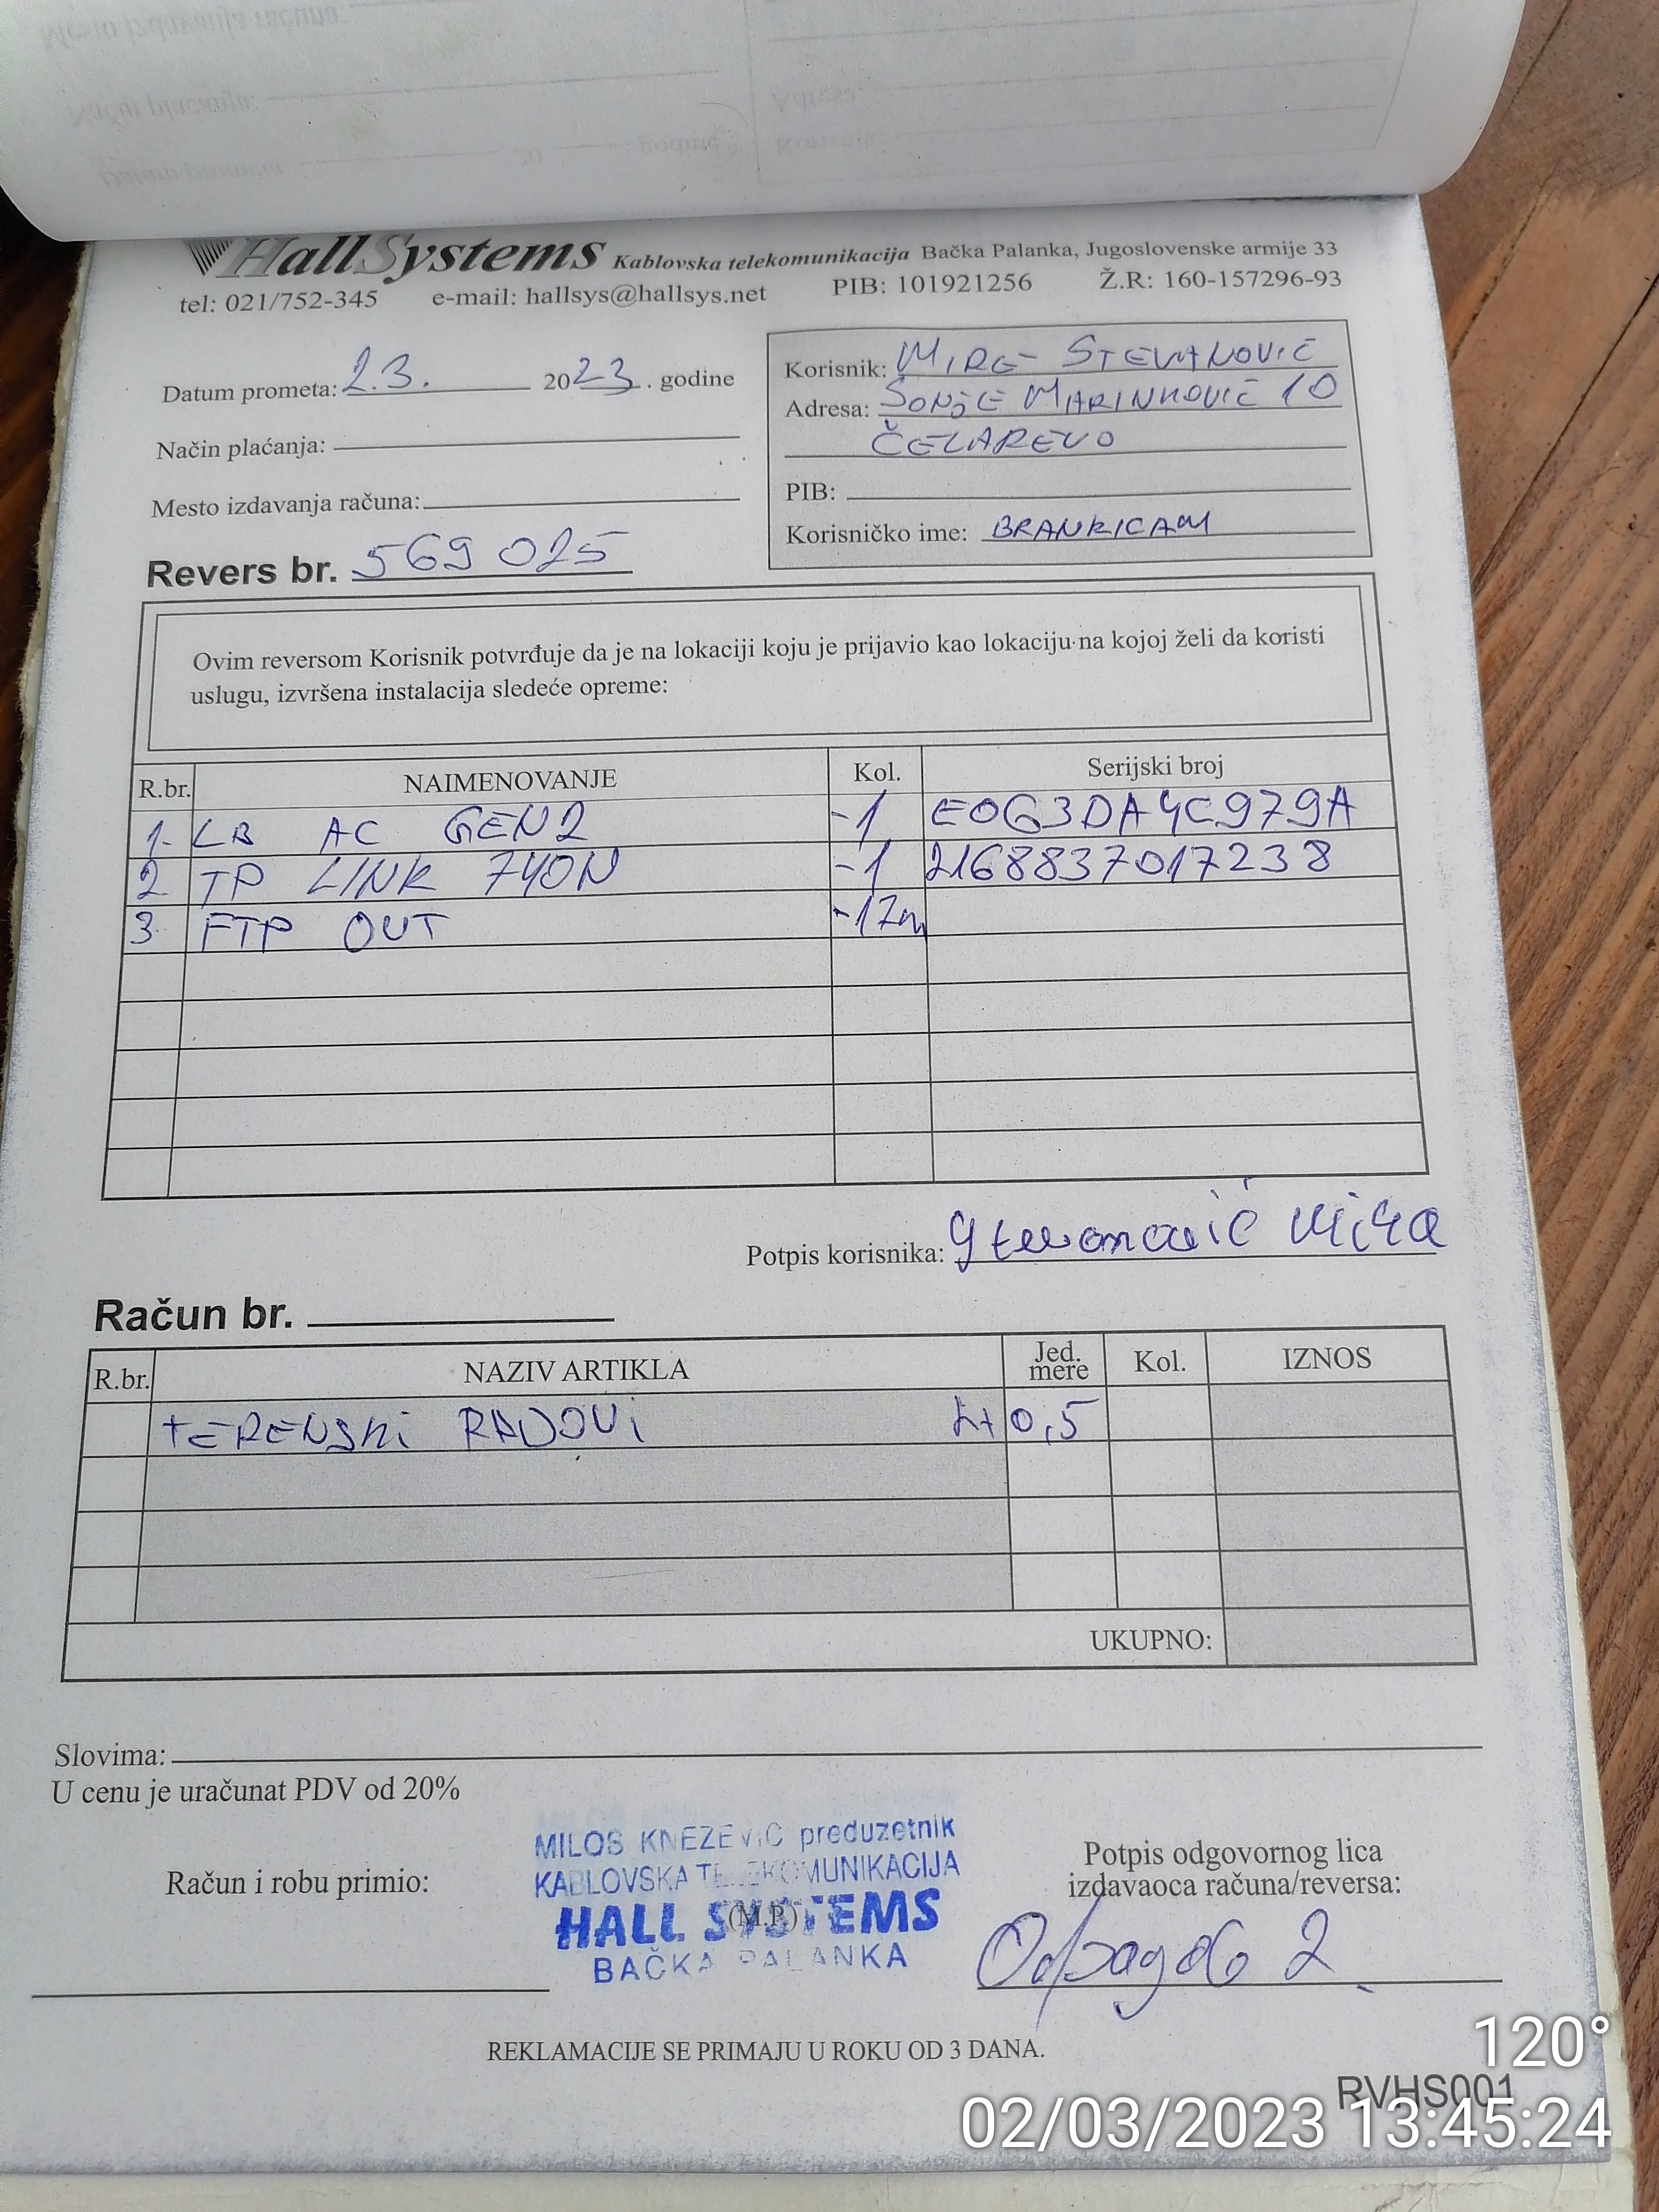 HallSystems Kablovska telekomunikacija Bačka Palanka, Jugoslovenske armije 33
tel: 021/752-345 e-mail: hallsys@hallsys.net PIB: 101921256 Ž.R: 160-157296-93
Datum prometa: 2.3. 2023. godine
Način plaćanja:
Mesto izdavanja računa:
Korisnik: MIRE STEVANOVIĆ
Adresa: SONJE MARINKOVIĆ 10
ČELAREVO
PIB:
Korisničko ime: BRANKICAM
Revers br. 569025
Ovim reversom Korisnik potvrđuje da je na lokaciji koju je prijavio kao lokaciju na kojoj želi da koristi
uslugu, izvršena instalacija sledeće opreme:
R.br. NAIMENOVANJE Kol. Serijski broj
1. LB AC GEN2 -1 E0G3DA4C979A
2 TP LINK 740N -1 2168837017238
3. FTP OUT -17m
Potpis korisnika: Stevanović Mira
Račun br.
R.br. NAZIV ARTIKLA Jed. mere Kol. IZNOS
TERENSKI RADOVI 0,5
UKUPNO:
Slovima:
U cenu je uračunat PDV od 20%
MILOS KNEZEVIC preduzetnik
KABLOVSKA TELEKOMUNIKACIJA
HALL SYSTEMS
(M.P.)
BAČKA PALANKA
Račun i robu primio:
Potpis odgovornog lica
izdavaoca računa/reversa:
REKLAMACIJE SE PRIMAJU U ROKU OD 3 DANA.
RVHS001
120°
02/03/2023 13:45:24